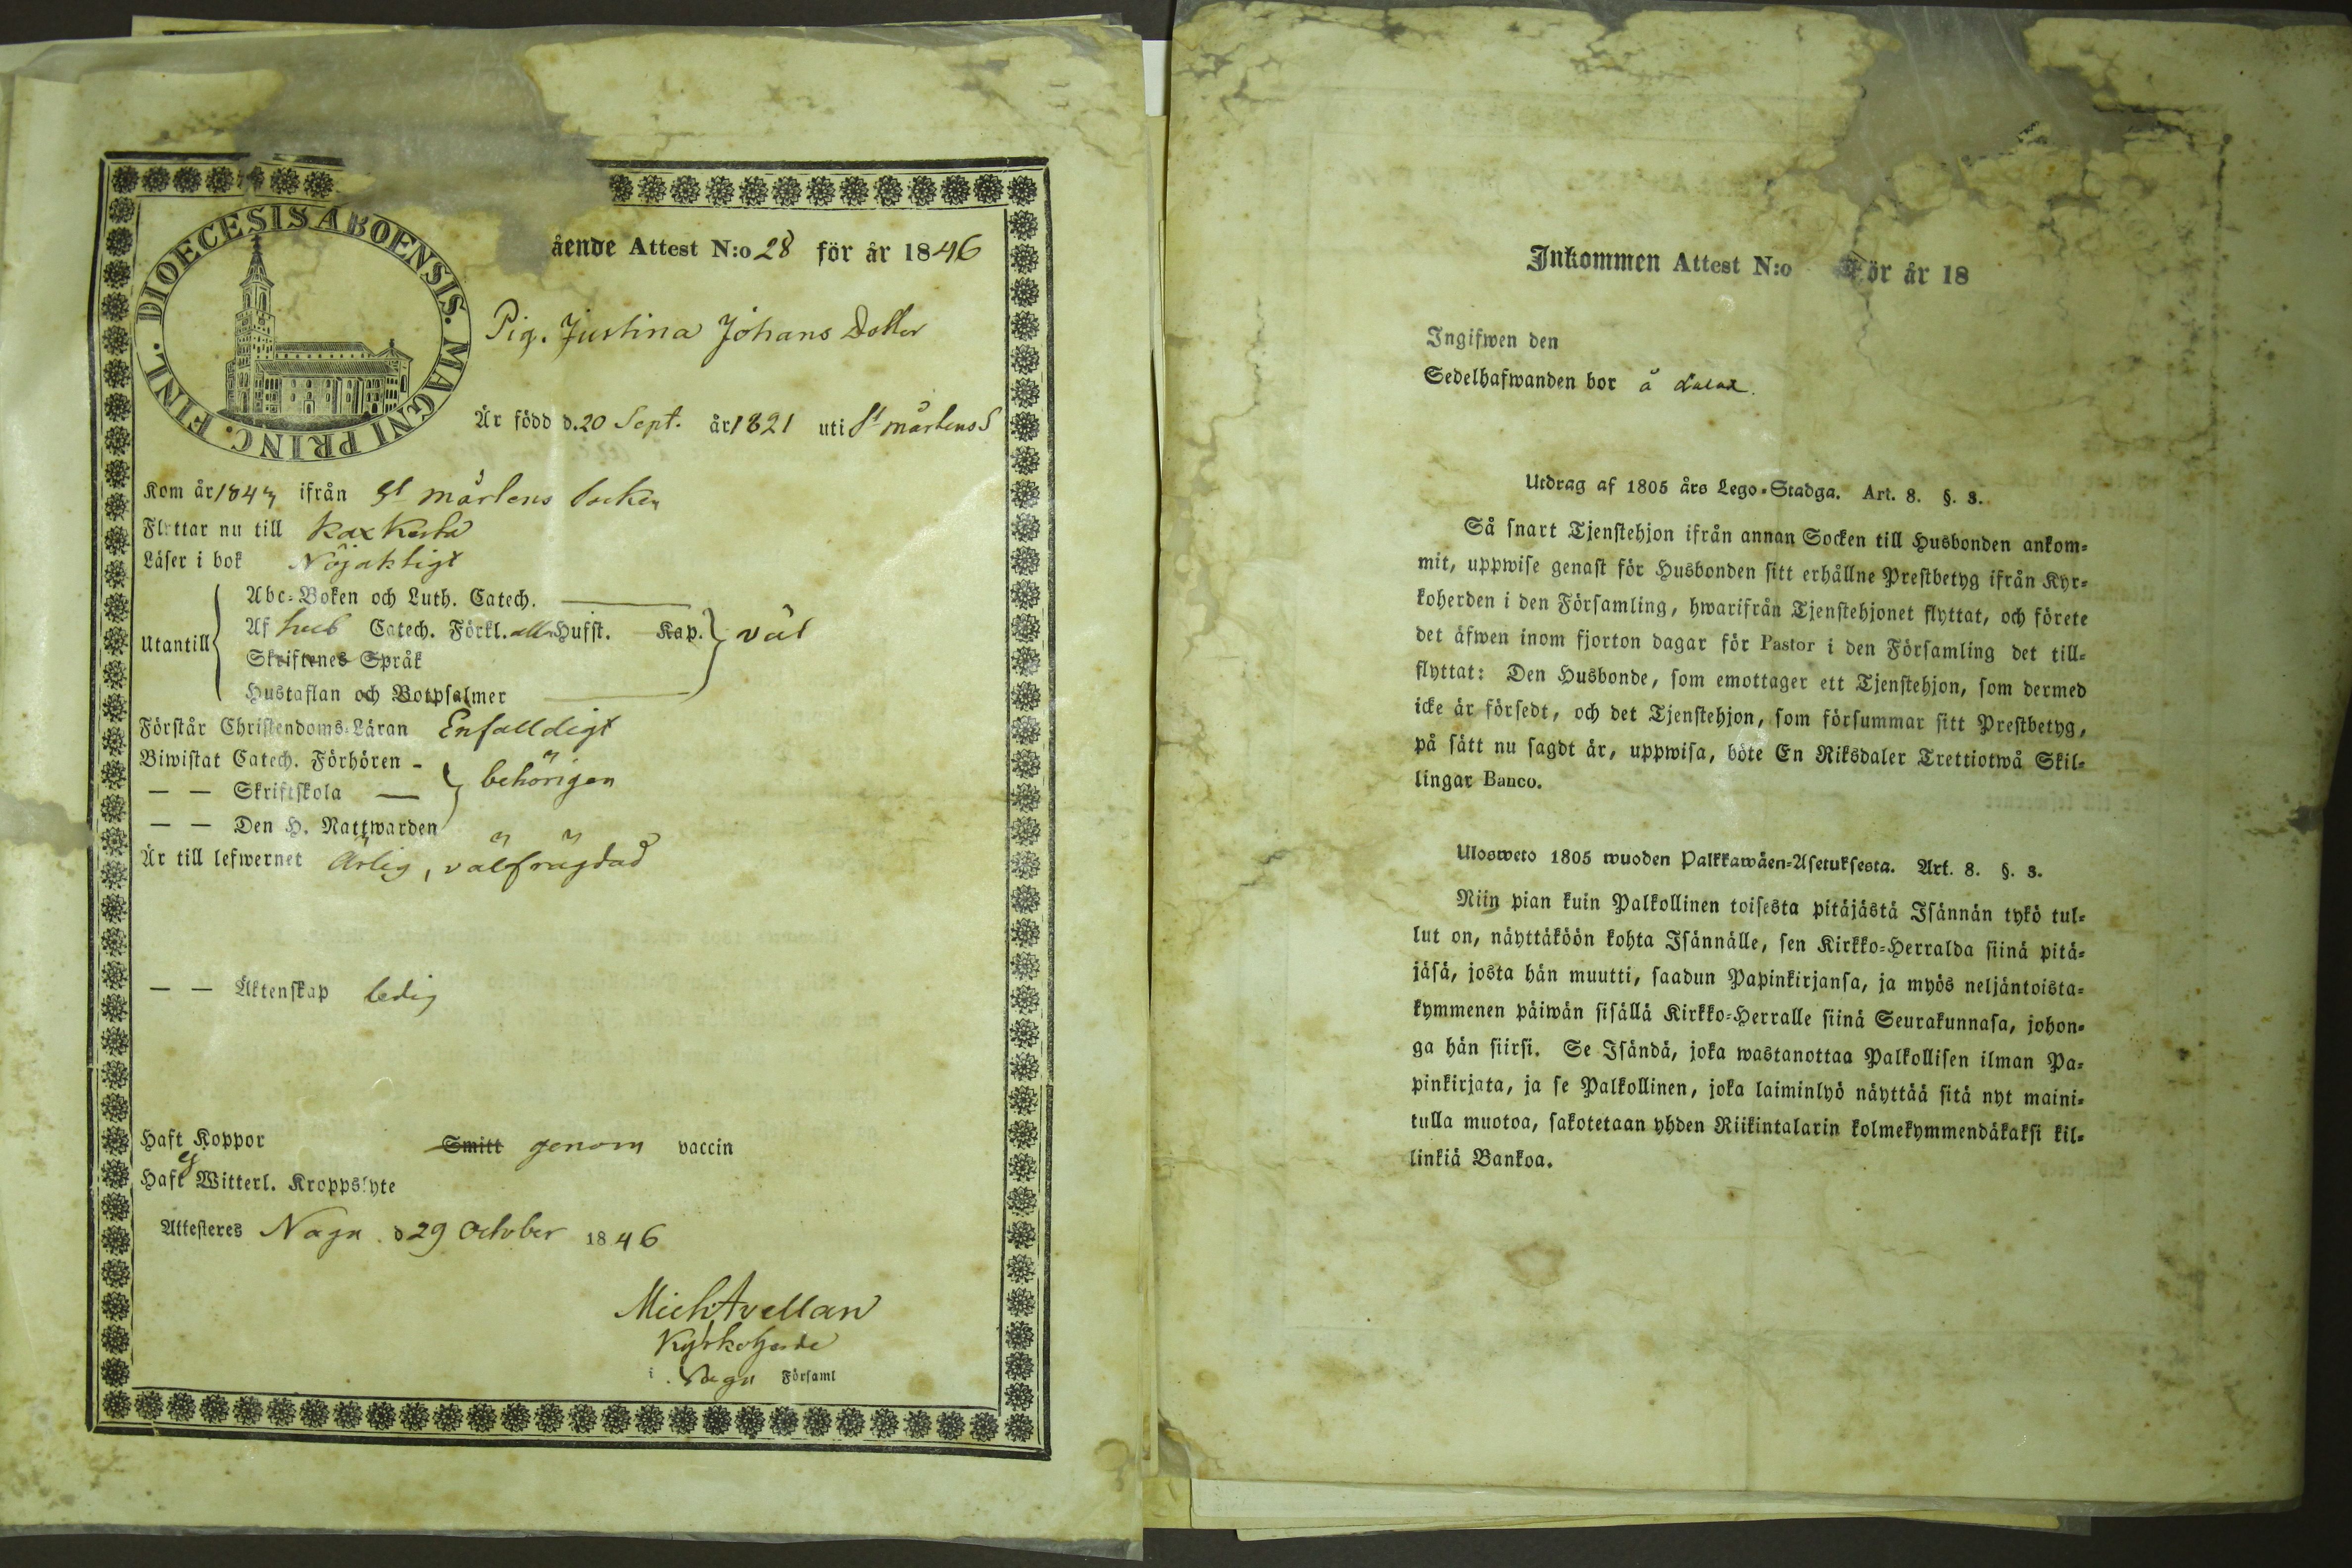 DIOECESIS ABOENSIS. MAGNI PRINC. FINL.
ående Attest N:o 28 för år 1846
Pig. Justina Johans Dotter
Är född d. 20 Sept. år 1821 uti St Mårtens S
Kom år 1843 ifrån St Mårtens Socken
Flyttar nu till Kaxkerta
Läser i bok Nöjaktigt
Utantill
Abc-Boken och Luth. Catech.
Af Catech. Förkl. Husft. Kap. väl
Skriftenes Språk
Hustaflan och Botpsalmer
Förstår Christendoms-Läran Enfalldigt
Biwistat Catech. Förhören - behörigen
— — Skriftskola —
— — Den H. Nattwarden
Är till lefwernet Ärlig, välfrägdad
— — Äktenskap ledig
Haft Koppor Smitt genom vaccin
Haft ej Witterl. Kroppslyte
Attesteres Nagu d 29 October 1846
Mich Avellan
Kyrkoherde
i Nagu Församl
Inkommen Attest N:o för år 18
Ingifwen den
Sedelhafwanden bor å
Utdrag af 1805 års Lego-Stadga. Art. 8. §. 3.
Så snart Tjenstehjon ifrån annan Socken till Husbonden ankom-
mit, uppwise genast för Husbonden sitt erhållne Prestbetyg ifrån Kyr-
koherden i den Församling, hwarifrån Tjenstehjonet flyttat, och förete
det äfwen inom fjorton dagar för Pastor i den Församling det till-
flyttat: Den Husbonde, som emottager ett Tjenstehjon, som dermed
icke är försedt, och det Tjenstehjon, som försummar sitt Prestbetyg,
på sätt nu sagdt är, uppwisa, böte En Riksdaler Trettiotwå Skil-
lingar Banco.
Ulosweto 1805 wuoden Palkkawäen-Asetuksesta. Art. 8. §. 3.
Niin pian kuin Palkollinen toisesta pitäjästä Isännän tykö tul-
lut on, näyttäköön kohta Isännälle, sen Kirkko-Herralda siinä pitä-
jäsä, josta hän muutti, saadun Papinkirjansa, ja myös neljäntoista-
kymmenen päiwän sisällä Kirkko-Herralle siinä Seurakunnasa, johon-
ga hän siirsi. Se Isändä, joka wastanottaa Palkollisen ilman Pa-
pinkirjata, ja se Palkollinen, joka laiminlyö näyttää sitä nyt maini-
tulla muotoa, sakotetaan yhden Riikintalarin kolmekymmendäkaksi kil-
linkiä Bankoa.